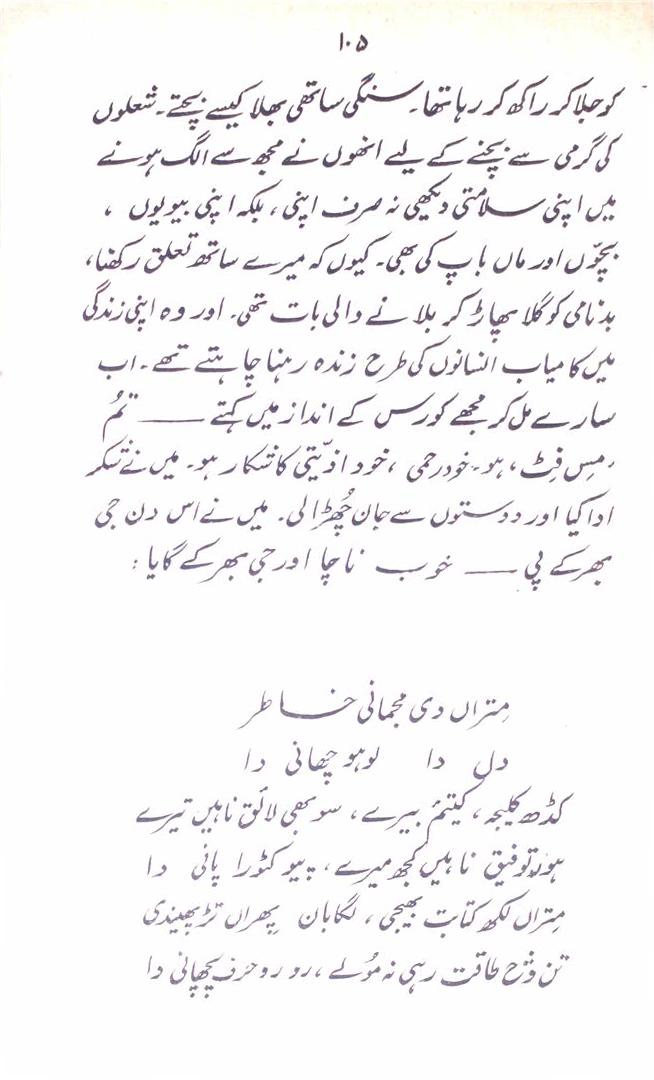 ۱۰۵
کو جلا کر راکھ کر رہا تھا۔ سنگی ساتھی بھلا کیسے بچتے۔ شعلوں
کی گرمی سے بچنے کے لیے انھوں نے مجھ سے الگ ہونے
میں اپنی سلامتی دیکھی نہ صرف اپنی، بلکہ اپنی بیویوں،
بچّوں اور ماں باپ کی بھی۔ کیوں کہ میرے ساتھ تعلق رکھنا،
بدنامی کو گلا پھاڑ کر بلانے والی بات تھی۔ اور وہ اپنی زندگی
میں کامیاب انسانوں کی طرح زندہ رہنا چاہتے تھے۔ اب
سارے مل کر مجھے کورس کے انداز میں کہتے —— تمُ
’مِس فِٹ‘ ہو۔ خود رحمی، خود اذیّتی کا شکار ہو۔ میں نے شکر
ادا کیا اور دوستوں سے جان چھُڑالی۔ میں نے اس دن جی
بھر کے پی —— خوب ناچا اور جی بھر کے گایا:
مِتراں دی مجمانی خاطر
دل دا لوہو چھانی دا
کڈھ کلیجہ، کیتم بیرے، سو بھی لائق ناہیں تیرے
ہور توفیق ناہیں کُجھ میرے، پیو کٹورا پانی دا
مِتراں لکھ کتابت بھیجی، لگا بان پھِراں تڑپھیندی
تن وِچ طاقت رہی نہ مُولے، رو رو حرف پچھانی دا